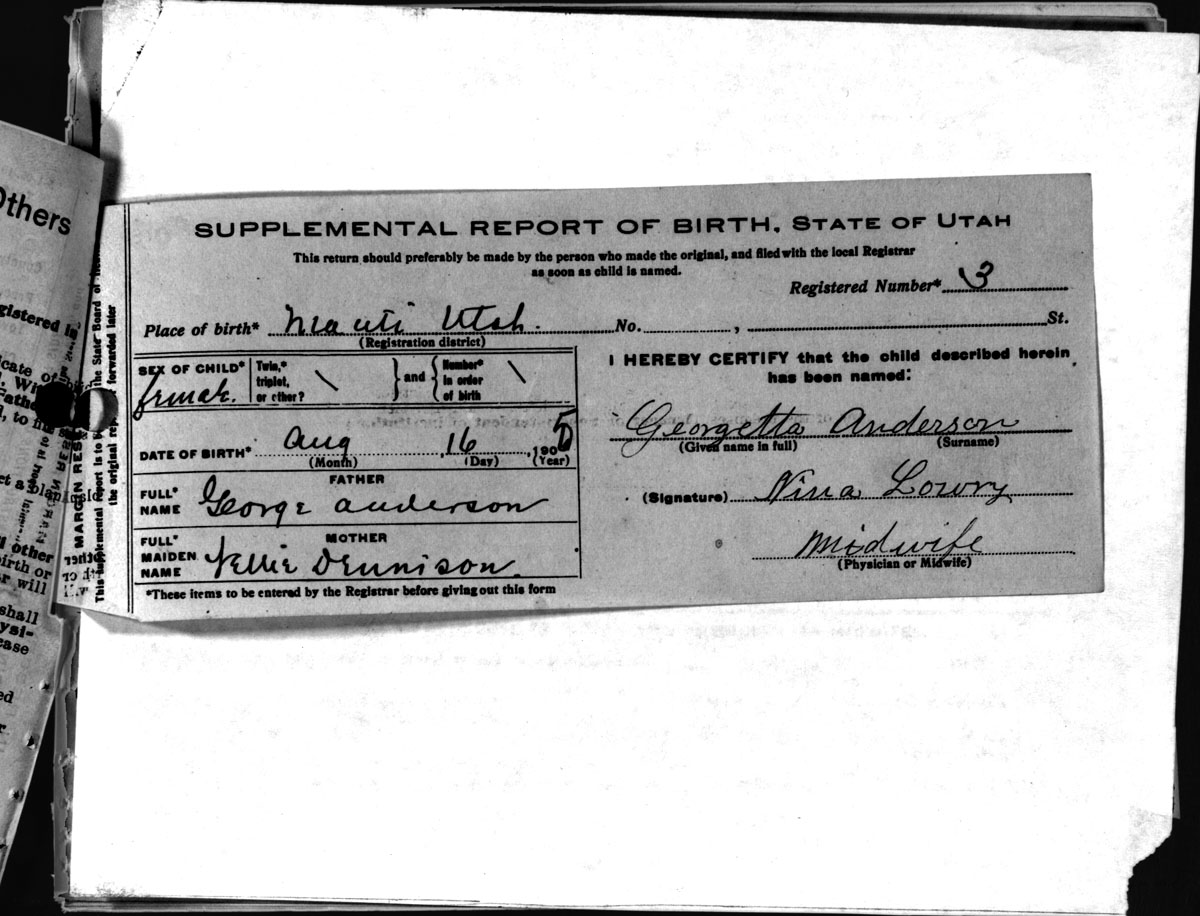 Others
SUPPLEMENTAL REPORT OF BIRTH, STATE OF UTAH
This return should preferably be made by the person who made the original, and filed with the local Registrar
as soon as child is named.
Registered Number* 3
Place of birth* Manti Utah. No. , St.
(Registration district)
SEX OF CHILD* female. Twin,* triplet, or other? \ and Number* in order of birth \
DATE OF BIRTH* Aug 16, 1905
(Month) (Day) (Year)
FATHER
FULL* NAME George Anderson
MOTHER
FULL* MAIDEN NAME Nellie Dennison.
*These items to be entered by the Registrar before giving out this form
I HEREBY CERTIFY that the child described herein
has been named:
Georgetta Anderson
(Given name in full) (Surname)
(Signature) Nina Lowry
Midwife
(Physician or Midwife)
MARGIN RES
This supplemental report is to
the original rep forwarded later
gistered in
icate of
other
birth or
r will
shall
ysi-
ease